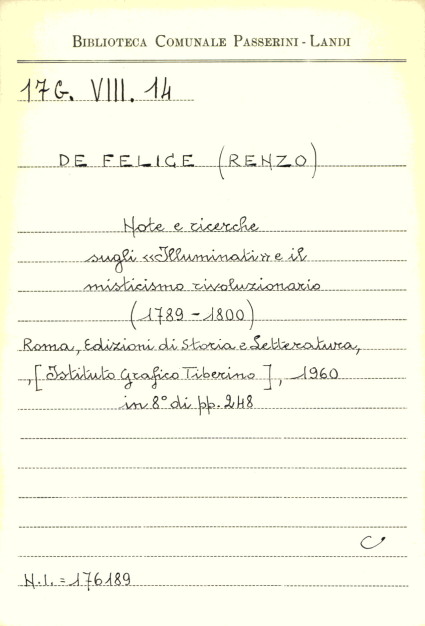 BIBLIOTECA COMUNALE PASSERINI - LANDI
17G. VIII. 14
DE FELICE (RENZO)
Note e ricerche
sugli «Illuminati» e il
misticismo rivoluzionario
(1789 - 1800)
Roma, Edizioni di Storia e Letteratura,
,[Istituto Grafico Tiberino], 1960
in 8° di pp. 248
N.I. = 176189